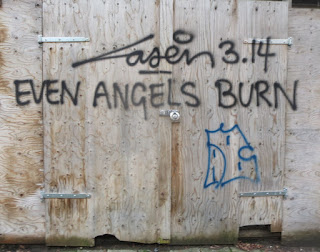 Lasein 3.14
EVEN ANGELS BURN